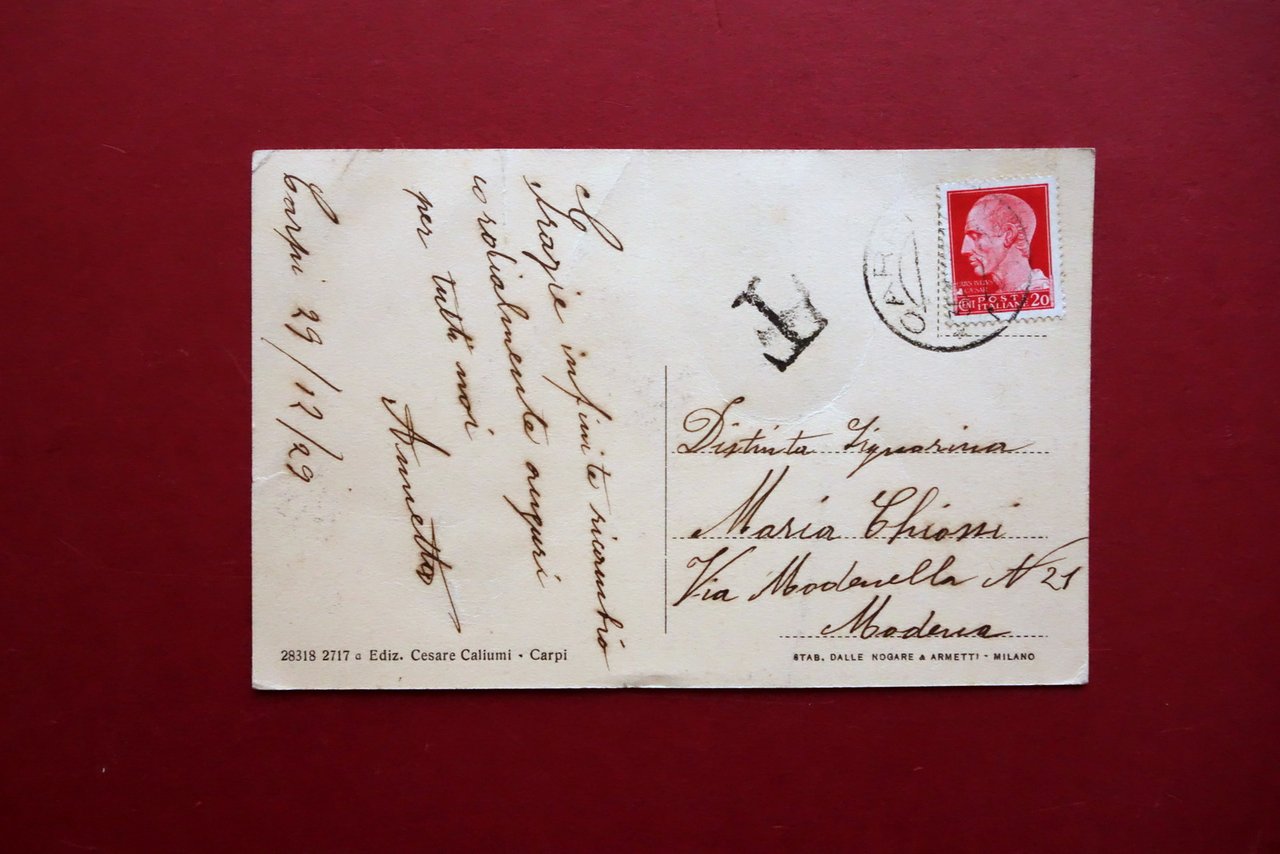 Carpi 29/12/29
Grazie infinite ricambio
cordialmente auguri
per tutti noi
Annetta
28318 2717 a Ediz. Cesare Caliumi - Carpi
CARPI
T
POSTE
ITALIANE
CENT 20
Distinta Signorina
Maria Chiossi
Via Modenella N 21
Modena
STAB. DALLE NOGARE & ARMETTI - MILANO